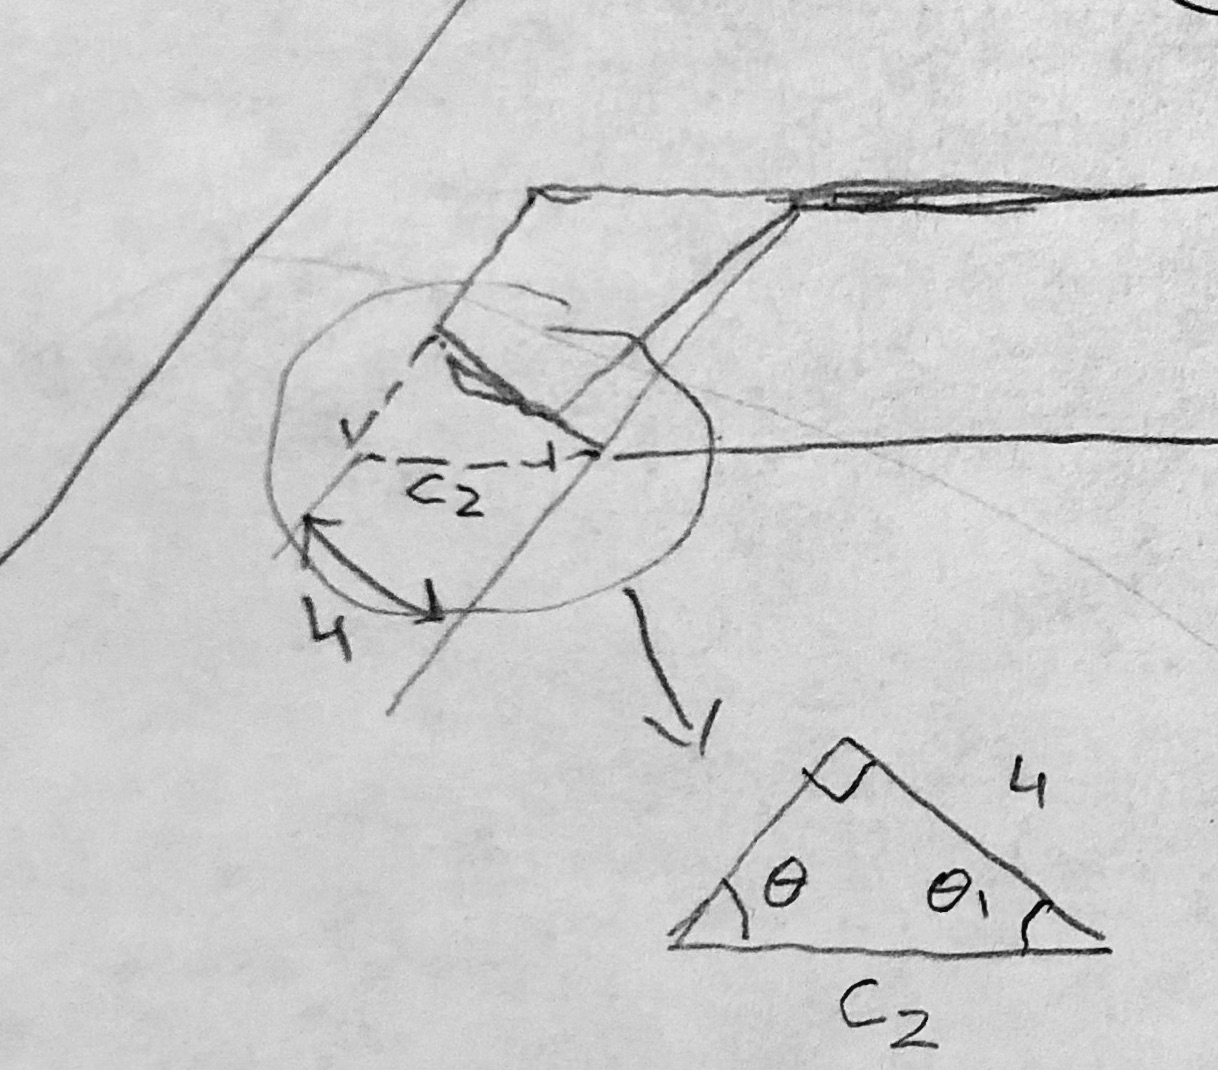 C2
4
4
θ θ1
C2